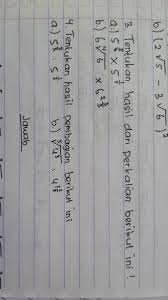 b) (2√5 - 3√6)²
3. Tentukan hasil dari perkalian berikut ini !
a) 5 x 5
b) 6 √6 x 6
4. Tentukan hasil pembagian berikut ini
a) 5 : 5 b) √4 : 4
Jawab